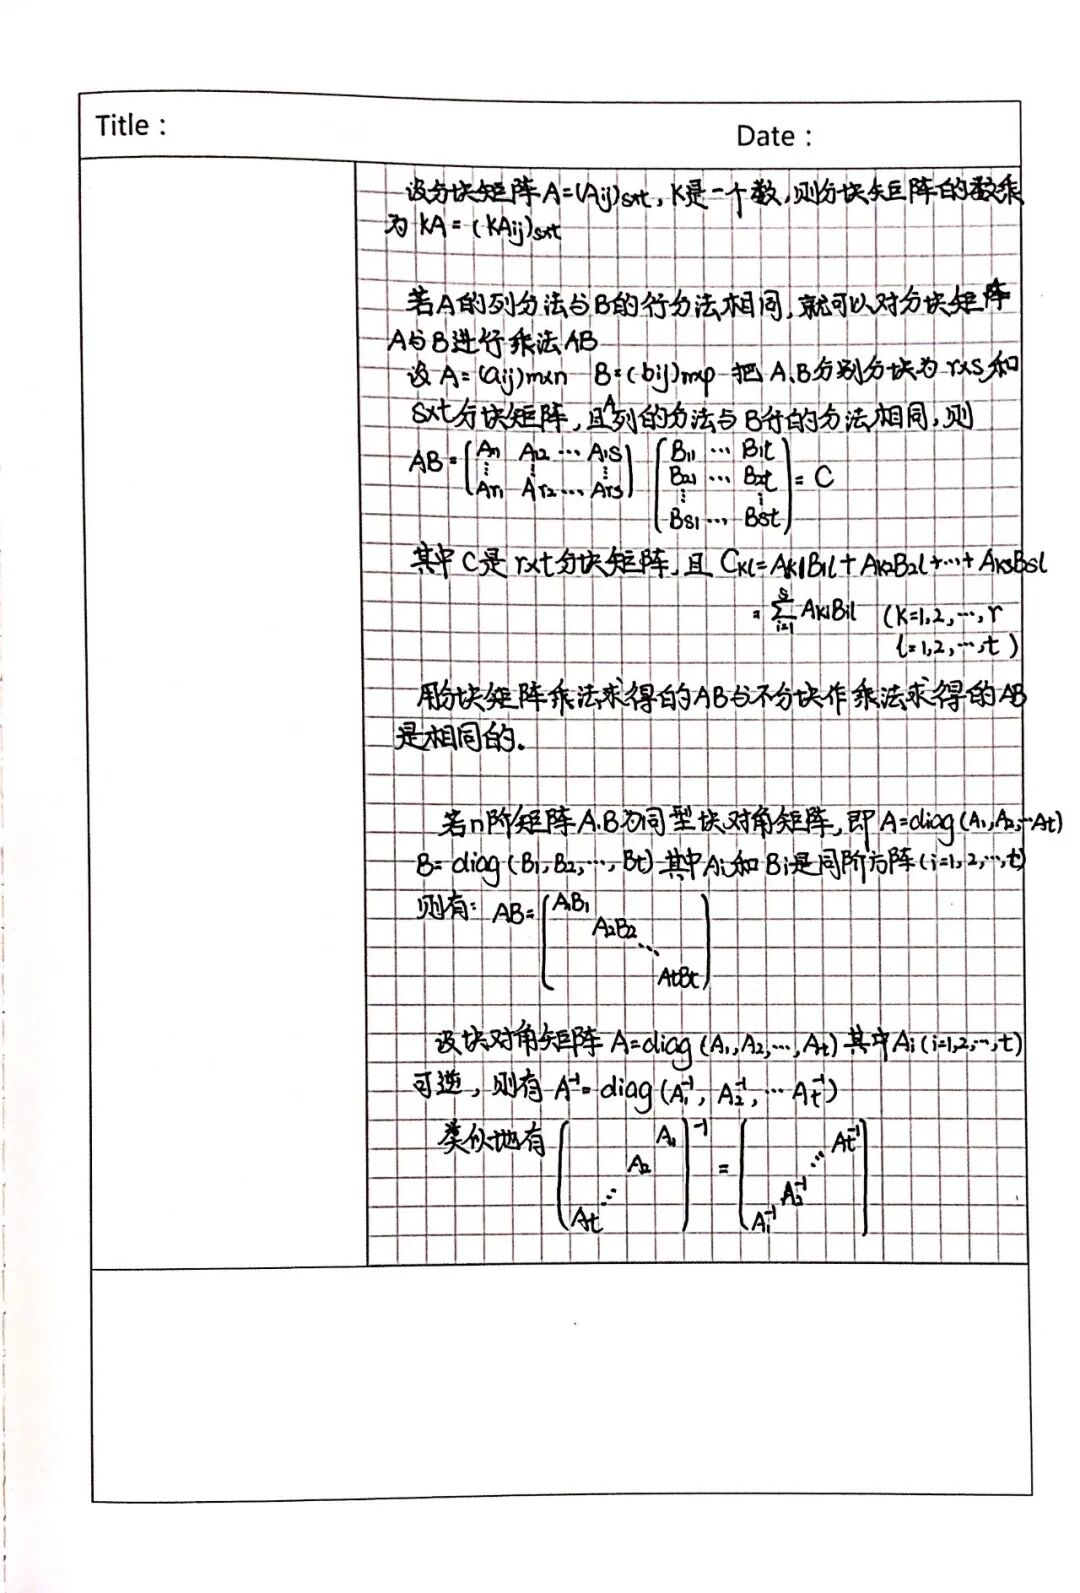 Title：
Date：
设分块矩阵A=(Aij)s×t，K是一个数，则分块矩阵的数乘
为 KA=(KAij)s×t
若A的列分法与B的行分法相同，就可以对分块矩阵
A与B进行乘法AB
设 A=(aij)m×n B=(bij)n×p 把 A、B分别分块为 r×s 和
s×t分块矩阵，且A列的分法与B行的分法相同，则
AB=(A11 A12 ⋯ A1s (B11 ⋯ B1t
⋮ ⋮ ⋮ B21 ⋯ B2t = C
Ar1 Ar2 ⋯ Ars) ⋮ ⋮
Bs1 ⋯ Bst)
其中C是 r×t 分块矩阵，且 Ckl=Ak1B1l+Ak2B2l+⋯+AksBsl
=∑(i=1→s) AkiBil (K=1,2,⋯,r
l=1,2,⋯,t)
用分块矩阵乘法求得的AB与不分块作乘法求得的AB
是相同的.
若n阶矩阵A.B为同型块对角矩阵，即 A=diag(A1,A2,⋯At)
B=diag(B1,B2,⋯,Bt) 其中Ai和Bi是同阶方阵(i=1,2,⋯,t)
则有：AB=(A1B1
A2B2
⋱
AtBt)
设块对角矩阵 A=diag(A1,A2,⋯,At) 其中Ai(i=1,2,⋯,t)
可逆，则有 A⁻¹=diag(A1⁻¹, A2⁻¹, ⋯ At⁻¹)
类似地有 ( A1 )⁻¹ = ( At⁻¹ )
A2 ⋰
⋰ A2⁻¹
At A1⁻¹